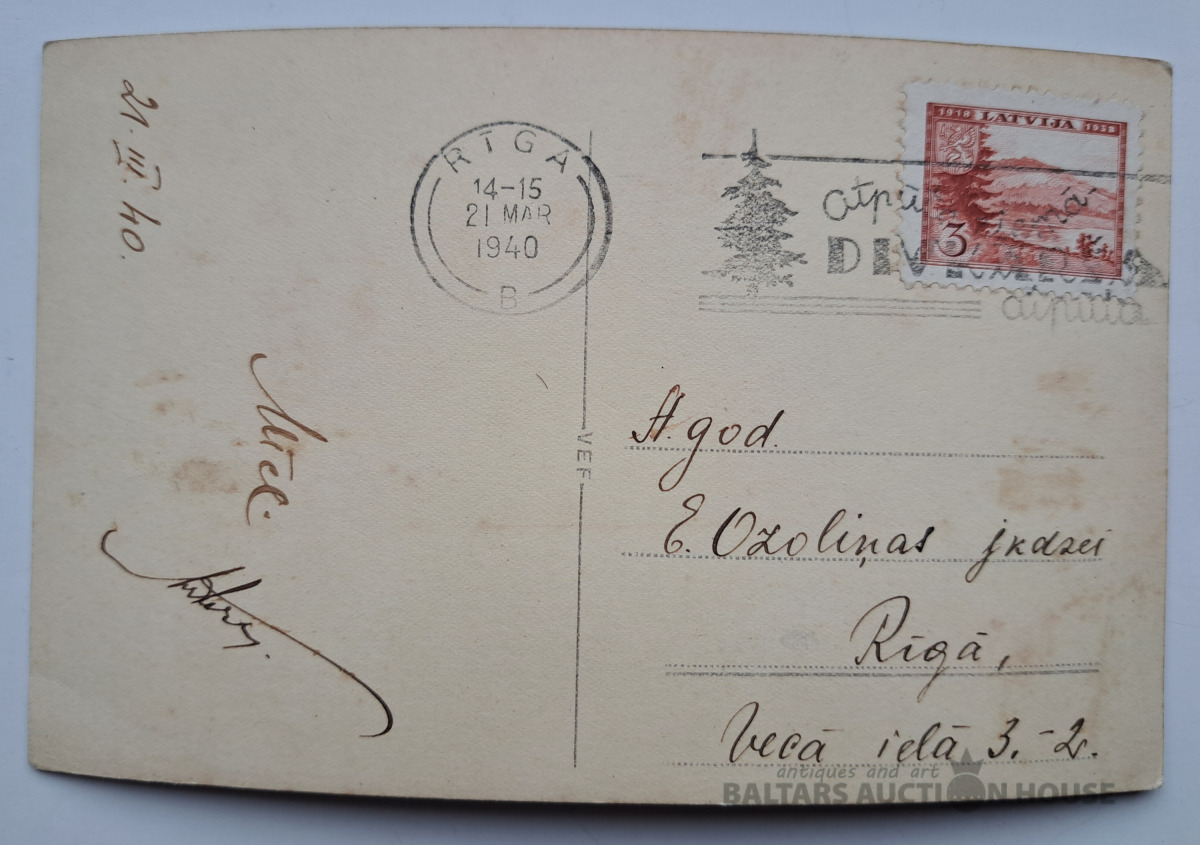 21. III. 40.
RĪGA
14-15
21 MAR
1940
B
1918 LATVIJA 1938
3
atpūta
VEF
A. god.
E. Ozoliņas jkdzei
Rīgā,
Vecā ielā 3.-2.
antiques and art
BALTARS AUCTION HOUSE